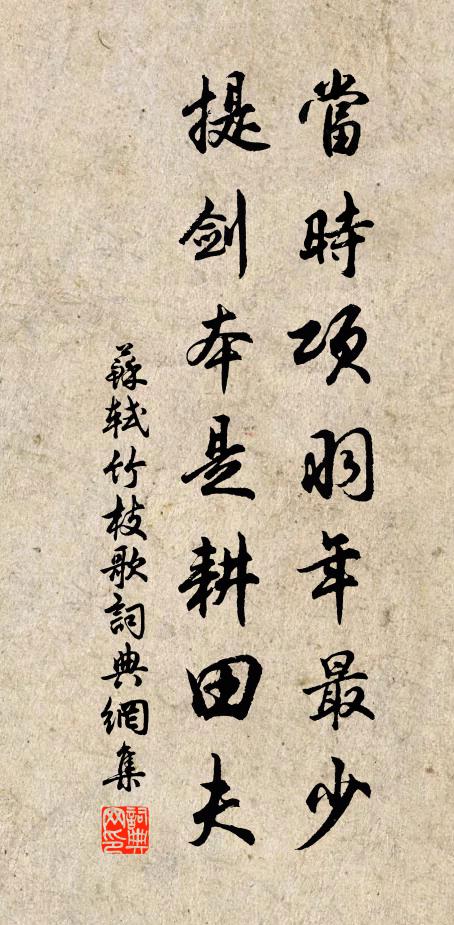 當時项羽年最少
提剑本是耕田夫
蘇轼竹枝歌詞典網集
詞典网印